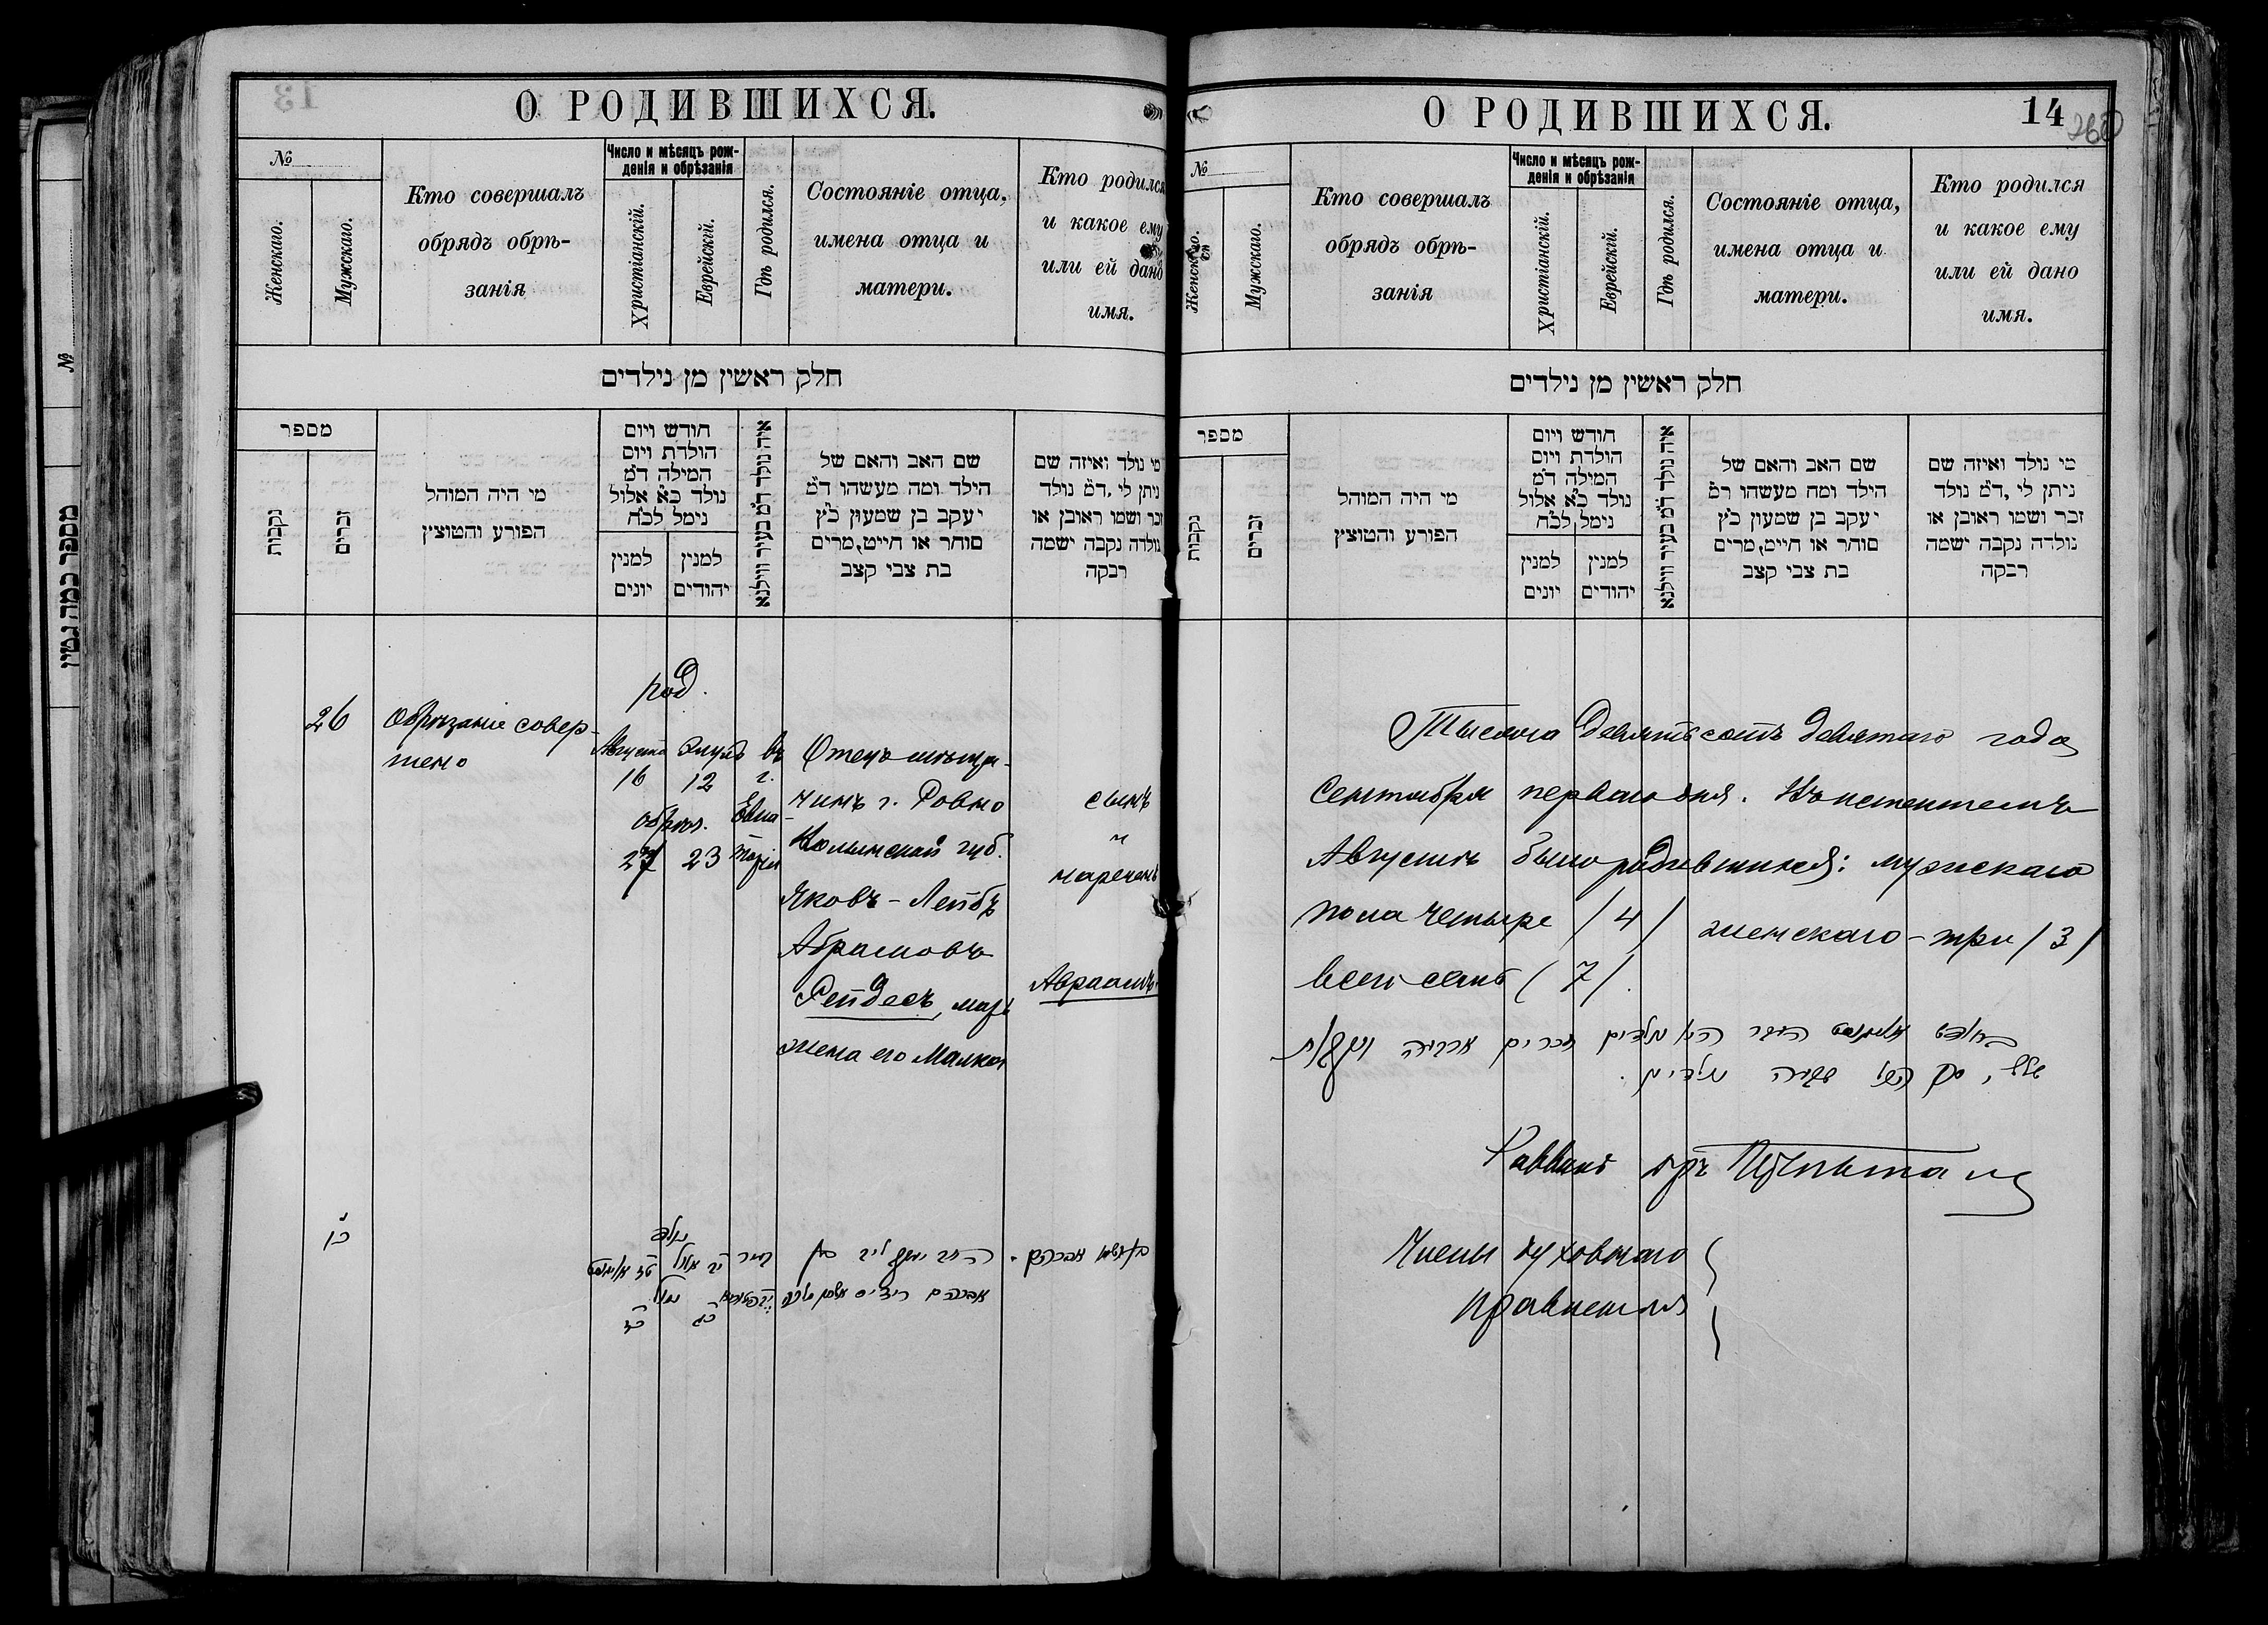 О РОДИВШИХСЯ.
№
Женскаго.
Мужскаго.
Кто совершалъ
обрядъ обрѣ-
занія
Число и мѣсяцъ рож-
денія и обрѣзанія
Христіанскій.
Еврейскій.
Гдѣ родился.
Состояніе отца,
имена отца и
матери.
Кто родился
и какое ему
или ей дано
имя.
חלק ראשין מן נילדים
מספר
נקבות
זכרים
מי היה המוהל
הפורע והטוצץ
חודש ויום
הולדת ויום
המילה ד״מ
נולד כ״א אלול
נימל לכ״ח
למנין
יונים
למנין
יהודים
איה נולד ד״מ בעיר ווילנא
שם האב והאם של
הילד ומה מעשהו ד״מ
יעקב בן שמעון כ״ץ
סוחר או חייט, מרים
בת צבי קצב
מי נולד ואיזה שם
ניתן לי, ד״מ נולד
זכר ושמו ראובן או
נולדה נקבה ישמה
רבקה
26
Обрѣзаніе совер-
шено
род.
Августа Элулъ
16 12
обрѣз.
27 23
въ
г.
Евпа-
торіи
Отецъ мѣща-
нинъ г. Ровно
Волынской губ.
Яковъ-Лейбъ
Абрамовъ
Рейдесъ, мать
жена его Малка
сынъ
и
нареченъ
Авраамъ.
כו
נולד
יב אלול
טז אויגוסט
נמול
כג
כז
בעיר
ר׳ יעקב ליב בן
אברהם ריידיס
ושמו אברהם
О РОДИВШИХСЯ.
14
260
№
Женскаго.
Мужскаго.
Кто совершалъ
обрядъ обрѣ-
занія
Число и мѣсяцъ рож-
денія и обрѣзанія
Христіанскій.
Еврейскій.
Гдѣ родился.
Состояніе отца,
имена отца и
матери.
Кто родился
и какое ему
или ей дано
имя.
חלק ראשין מן נילדים
מספר
נקבות
זכרים
מי היה המוהל
הפורע והטוצץ
חודש ויום
הולדת ויום
המילה ד״מ
נולד כ״א אלול
נימל לכ״ח
למנין
יונים
למנין
יהודים
איה נולד ד״מ בעיר ווילנא
שם האב והאם של
הילד ומה מעשהו ד״מ
יעקב בן שמעון כ״ץ
סוחר או חייט, מרים
בת צבי קצב
מי נולד ואיזה שם
ניתן לי, ד״מ נולד
זכר ושמו ראובן או
נולדה נקבה ישמה
רבקה
Тысяча девятьсотъ девятаго года
Сентября перваго дня. Въ истекшемъ
Августѣ было родившихся: мужскаго
пола четыре /4/ женскаго - три /3/
всего семь (7/.
בחודש אויגוסט העבר היו נולדים זכרים ארבעה ונקבות
שלש, סך הכל שבעה נולדים.
Раввинъ
Члены духовнаго
правленія
№
מספר כמה גטין